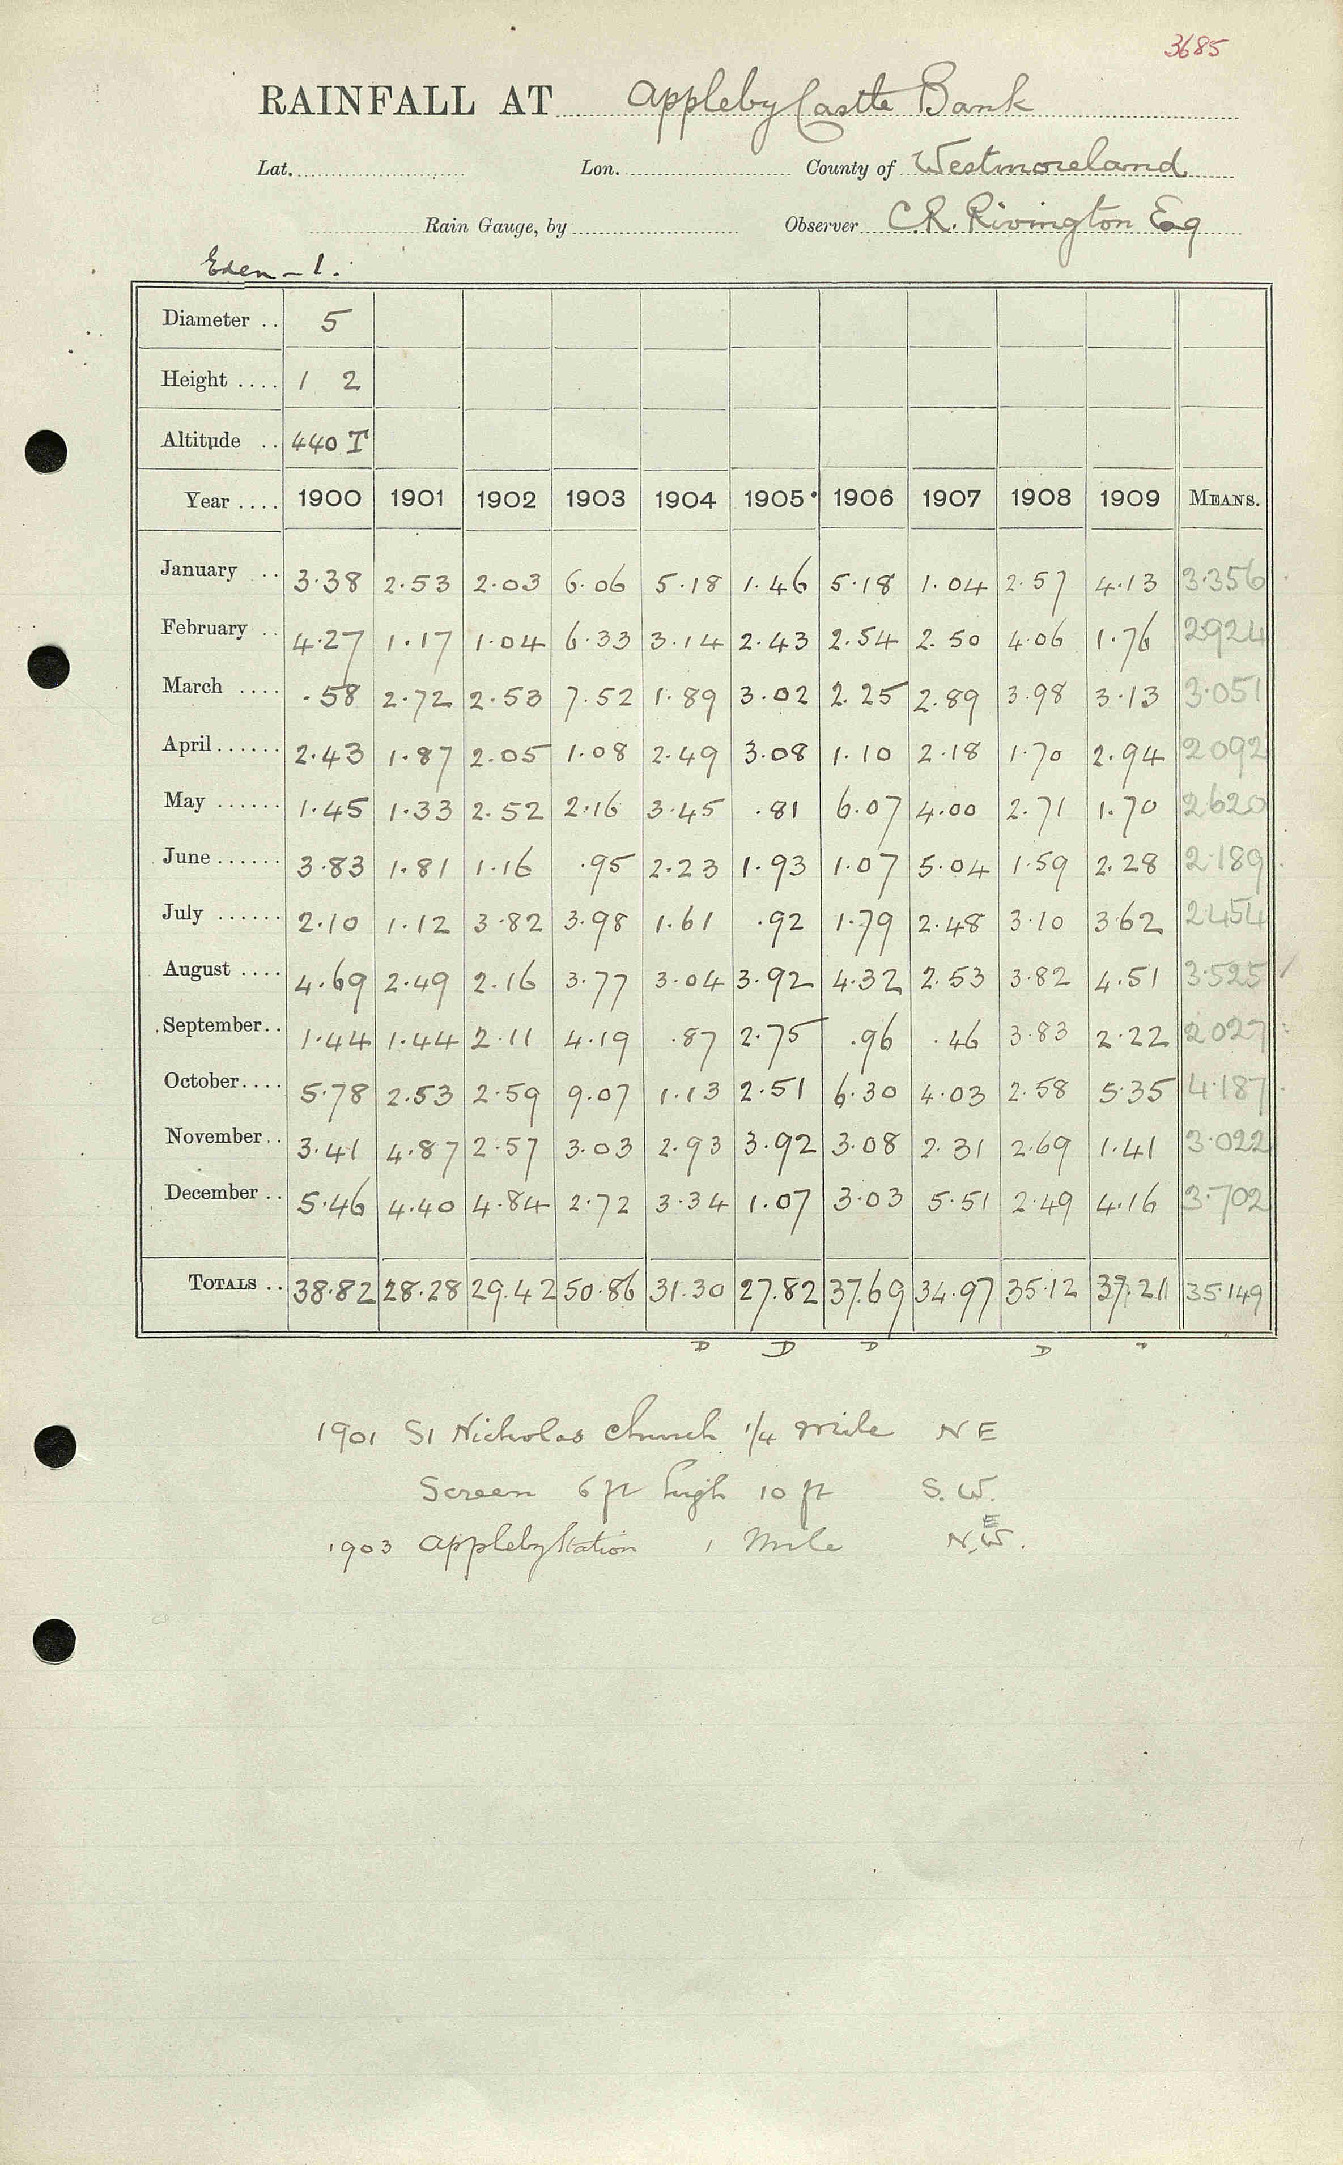 3685
RAINFALL AT Appleby Castle Bank
Lat. Lon. County of Westmoreland
Rain Gauge, by Observer C.R. Rivington Esq
Eden - 1.
Diameter .. 5
Height .... 1 2
Altitude .. 440 T
Year .... 1900 1901 1902 1903 1904 1905 1906 1907 1908 1909 MEANS.
January .. 3.38 2.53 2.03 6.06 5.18 1.46 5.18 1.04 2.57 4.13 3.356
February .. 4.27 1.17 1.04 6.33 3.14 2.43 2.54 2.50 4.06 1.76 2924
March .... .58 2.72 2.53 7.52 1.89 3.02 2.25 2.89 3.98 3.13 3.051
April ...... 2.43 1.87 2.05 1.08 2.49 3.08 1.10 2.18 1.70 2.94 2092
May ...... 1.45 1.33 2.52 2.16 3.45 .81 6.07 4.00 2.71 1.70 2620
June ...... 3.83 1.81 1.16 .95 2.23 1.93 1.07 5.04 1.59 2.28 2.189
July ...... 2.10 1.12 3.82 3.98 1.61 .92 1.79 2.48 3.10 3.62 2454
August .... 4.69 2.49 2.16 3.77 3.04 3.92 4.32 2.53 3.82 4.51 3.525
September .. 1.44 1.44 2.11 4.19 .87 2.75 .96 .46 3.83 2.22 2027
October .... 5.78 2.53 2.59 9.07 1.13 2.51 6.30 4.03 2.58 5.35 4.187
November .. 3.41 4.87 2.57 3.03 2.93 3.92 3.08 2.31 2.69 1.41 3.022
December .. 5.46 4.40 4.84 2.72 3.34 1.07 3.03 5.51 2.49 4.16 3.702
TOTALS .. 38.82 28.28 29.42 50.86 31.30 27.82 37.69 34.97 35.12 37.21 35.149
D D D D
1901 St Nicholas Church 1/4 mile N E
Screen 6 ft high 10 ft S. W.
E
1903 Appleby Station 1 Mile N.W.